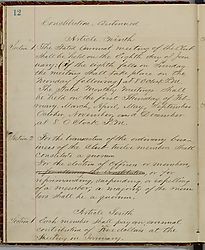 12
Constitution, Continued
Article Ninth
Section 1 The Stated annual meeting of the Club
shall be held on the Eighth day of Jan-
uary, (if the eighth falls on Sunday
the meeting shall take place on the
Monday following) at 8 O'clock P.M.
The Stated Monthly Meetings shall
be held on the first Thursday of Feb-
ruary, March, April, May, September
October, November, and December
at 8 O'Clock P.M.
Section 2 For the transaction of the ordinary busi-
ness of the Club twelve members shall
Constitute a quorum.
For the election of Officers or members,
or for
reprimanding, suspending, or expelling
of a member, a majority of the mem-
bers shall be a quorum.
Article Tenth
Section 1 Each member shall pay an annual
contribution of Five dollars at the
Meeting in January.